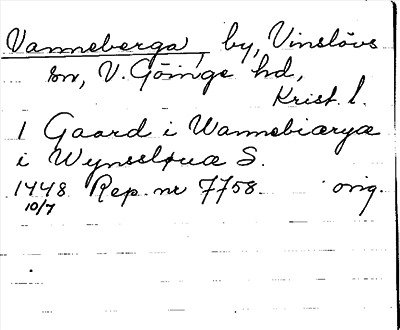 Vanneberga, by, Vinslövs
sn, V. Göinge hd,
Krist. l.
1 Gaard i Wannebiærgæ
i Wynssløuæ S.
1448 Rep. nr 7758. orig.
10/7